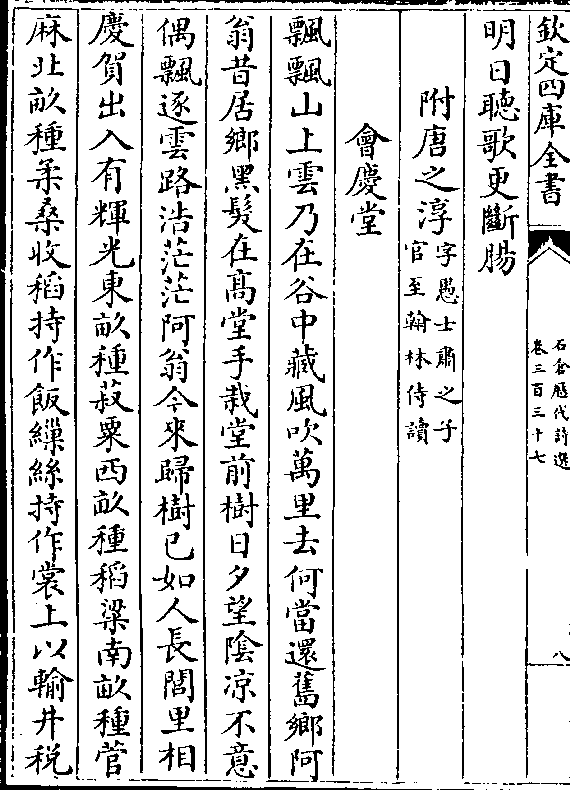 欽定四庫全書
石倉歷代詩選
卷三百三十七
八
明日聽歌更斷腸
附唐之淳字愚士肅之子
官至翰林侍讀
會慶堂
飄飄山上雲乃在谷中藏風吹萬里去何當還舊鄉阿
翁昔居鄉黑髮在高堂手栽堂前樹日夕望陰凉不意
偶飄逐雲路浩茫茫阿翁今來歸樹已如人長閭里相
慶賀出入有輝光東畝種菽粟西畝種稻粱南畝種菅
麻北畝種柔桑收稻持作飯繅絲持作裳上以輸井税